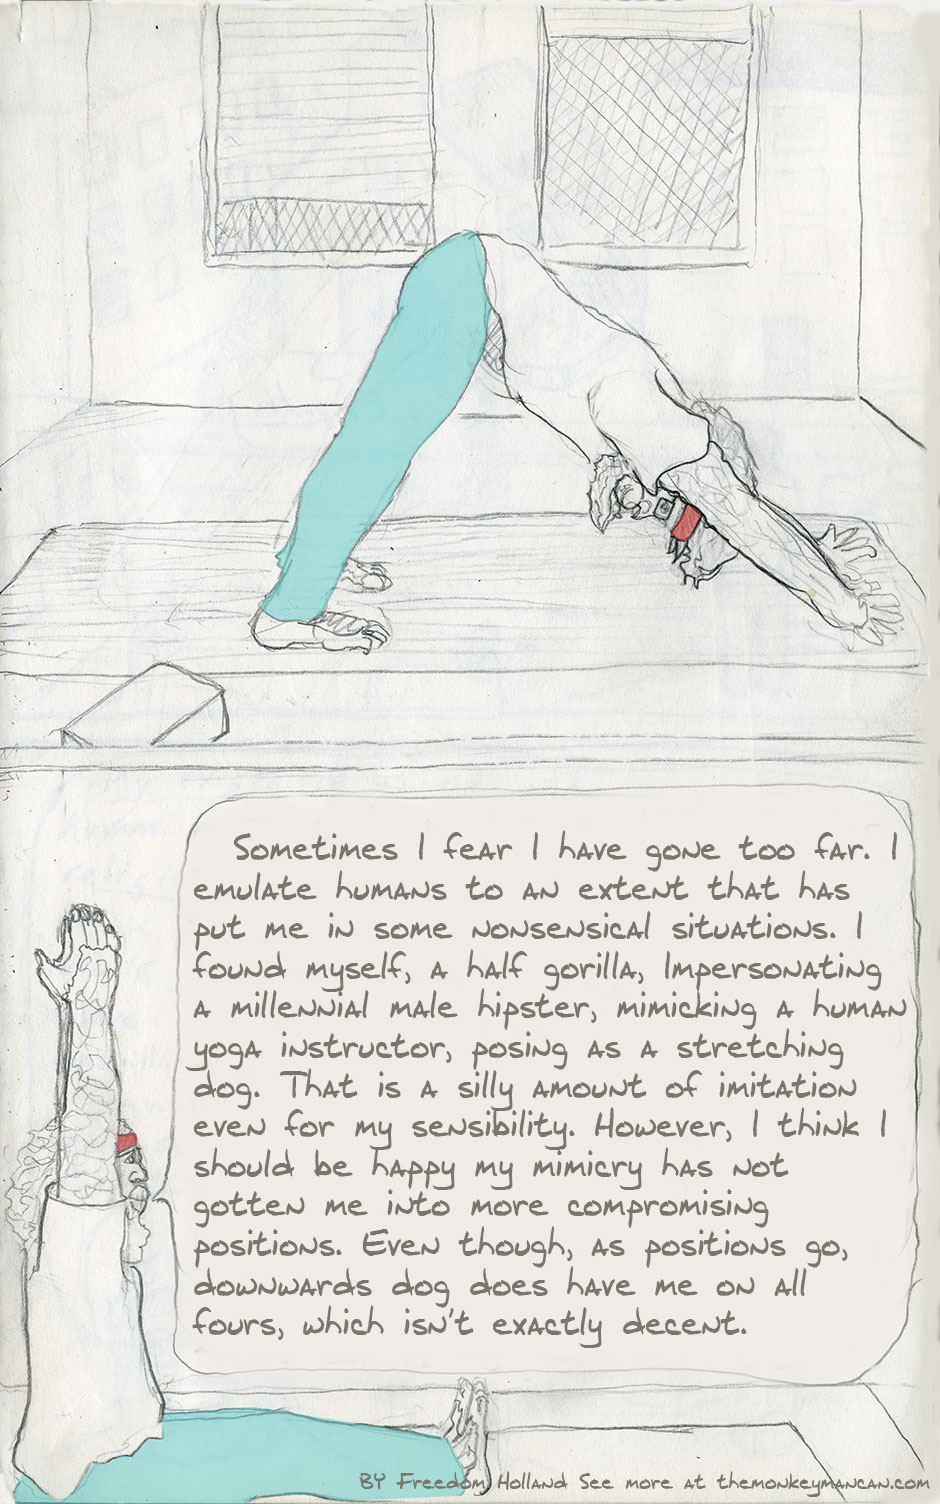 Sometimes I fear I have gone too far. I
emulate humans to an extent that has
put me in some nonsensical situations. I
found myself, a half gorilla, Impersonating
a millennial male hipster, mimicking a human
yoga instructor, posing as a stretching
dog. That is a silly amount of imitation
even for my sensibility. However, I think I
should be happy my mimicry has not
gotten me into more compromising
positions. Even though, as positions go,
downwards dog does have me on all
fours, which isn't exactly decent.
BY Freedom Holland See more at themonkeymancan.com